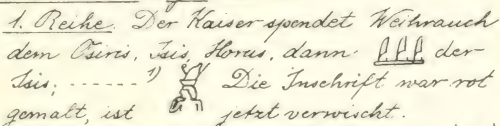 1. Reihe. Der Kaiser spendet Weihrauch
dem Osiris, Isis, Horus, dann der
Isis, ....... 1) Die Inschrift war rot
gemalt, ist jetzt verwischt.